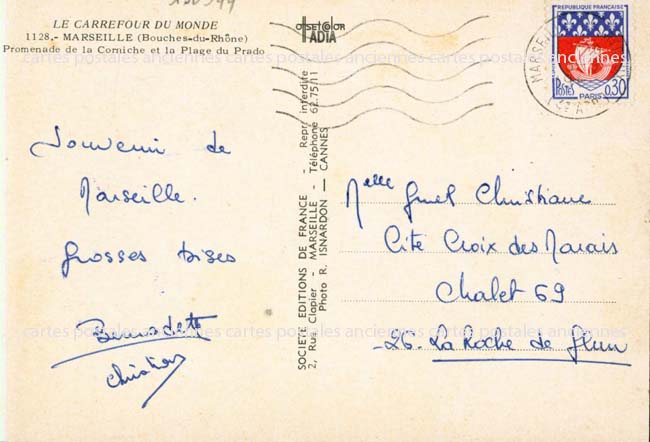 LE CARREFOUR DU MONDE
1128.- MARSEILLE (Bouches-du-Rhône)
Promenade de la Corniche et la Plage du Prado
OFFSETCOLOR
IADIA
REPUBLIQUE FRANÇAISE
POSTES
PARIS
0,30
cartes postales anciennes cartes postales anciennes cartes postales anciennes
Souvenir de
Marseille.
Grosses bises
Bernadette
Christian
SOCIETE EDITIONS DE FRANCE - Repr. interdite
2, Rue Clapier - MARSEILLE - Téléphone 62.75.11
Photo R. ISNARDON - CANNES
Melle Christiane
Cité Croix des Marais
Chalet 69
-26- La Roche de Glun
cartes postales anciennes cartes postales anciennes cartes postales anciennes